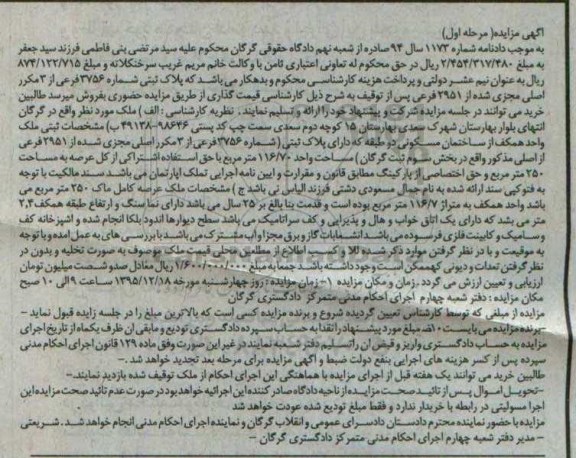 آگهی مزایده( مرحله اول)
به موجب دادنامه شماره ۱۱۷۳ سال ۹۴ صادره از شعبه نهم دادگاه حقوقی گرگان محکوم علیه سید مرتضی بنی فاطمی فرزند سید جعفر
به مبلغ ۲/۴۵۴/۳۱۷/۴۸۰ ریال در حق محکوم له تعاونی اعتباری ثامن با وکالت خانم مریم غریب سرخنکلانه و مبلغ ۸۷۴/۱۲۲/۷۱۵
ریال به عنوان نیم عشر دولتی و پرداخت هزینه کارشناسی محکوم و بدهکار می باشد که پلاک ثبتی شماره ۳۷۵۶ فرعی از ۳ مکرر
اصلی مجزی شده از ۲۹۵۱ فرعی پس از توقیف به شرح ذیل کارشناسی قیمت گذاری از طریق مزایده حضوری بفروش میرسد طالبین
خرید می توانند در جلسه مزایده شرکت و پیشنهاد خود را ارائه و تسلیم نمایند. نظریه کارشناسی : الف ) ملک مورد نظر واقع در گرگان
انتهای بلوار بهارستان شهرک سعدی بهارستان ۱۵ کوچه دوم سعدی سمت چپ کد پستی ۹۸۶۴۶-۴۹۱۳۸ ب) مشخصات ثبتی ملک
واحد همکف از ساختمان مسکونی دو طبقه که دارای پلاک ثبتی ( شماره ۳۷۵۶ فرعی از ۳ مکرر اصلی مجزی شده از ۲۹۵۱ فرعی
از اصلی مذکور واقع در بخش سوم ثبت گرگان ) مساحت واحد ۱۱۶/۷۰ متر مربع با حق استفاده اشتراکی از کل عرصه به مساحت
۲۵۰ متر مربع و حق اختصاصی از پارکینگ مطابق قانون و مقررارت و ایین نامه اجرایی تملک اپارتمان می باشد سند مالکیت با توجه
به فتوکپی سند ارائه شده به نام جمال مسعودی دشتی فرزند الیاس می باشد ج ) مشخصات ملک عرصه کامل ماک ۲۵۰ متر مربع می
باشد واحد همکف به متراژ ۱۱۶/۷ متر مربع بوده است و قدمت بنا بالغ بر ۲۵ سال می باشد دارای نما سنگ و ارتفاع طبقه همکف ۲,۴
متر می بشد که دارای یک اتاق خواب و هال و پذیرایی و کف سرامیک می باشد سطح دیوارها اندود بلکا انجام شده و اشپزخانه کف
و سرامیک و کابینت فلزی فرسوده می باشد انشعابات گاز و برق مجزا و اب مشترک می باشد با بررسی های به عمل امده و با توجه
به موقیعت و با در نظر گرفتن موارد ذکر شده بالا و کسب اطلاع از مطلعین محلی قیمت ملک موصوف به صورت تخلیه و بدون در
نظر گرفتن تعدات و دیونی که ممکن است وجود داشته باشد جمعا به مبلغ ۱/۶۰۰/۰۰۰/۰۰۰ ریال معادل صدو شصت میلیون تومان
ارزیابی و تعیین ارزش می گردد .زمان و مکان مزایده ۱- زمان مزایده : روز چهارشنبه مورخه ۱۳۹۵/۱۲/۱۸ ساعت ۹ الی ۱۰ صبح
مکان مزایده : دفتر شعبه چهارم اجرای احکام مدنی متمرکز دادگستری گرگان
مزایده از مبلغی که توسط کارشناس تعیین گردیده شروع و برنده مزایده کسی است که بالاترین مبلغ را در جلسه زایده قبول نماید –
–برنده مزایده می بایست ۱۰ ٪ مبلغ مورد پیشنهاد را نقدا به حساب سپرده دادگستری تودیع و مابقی ان ظرف یکماه از تاریخ اجرای
مزایده به حساب دادگستری واریز و فیض ان را تسلیم دفتر شعبه نمایند در غیر این صورت وفق ماده ۱۲۹ قانون اجرای احکام مدنی
سپرده پس از کسر هزینه های اجرایی بنفع دولت ضبط و اگهی مزایده برای مرحله بعد تجدید خواهد شد .–
طالبین خرید می توانند یک هفته قبل از اجرای مزایده با هماهنگی این اجرای احکام از ملک توقیف شده بازدید نمایند.–
–تحویل اموال پس از تائید صحت مزایده از ناحیه دادگاه صادر کننده این اجرائیه خواهد بود در صورت عدم تائید صحت مزایده این
اجرا مسولیتی در رابطه با خریدار ندارد و فقط مبلغ تودیع شده عودت خواهد شد
مزایده با حضور نماینده محترم دادستان دادسرای عمومی و انقلاب گرگان و نماینده اجرای احکام مدنی انجام خواهد شد. شریعتی
– مدیر دفتر شعبه چهارم اجرای احکام مدنی متمرکز دادگستری گرگان –